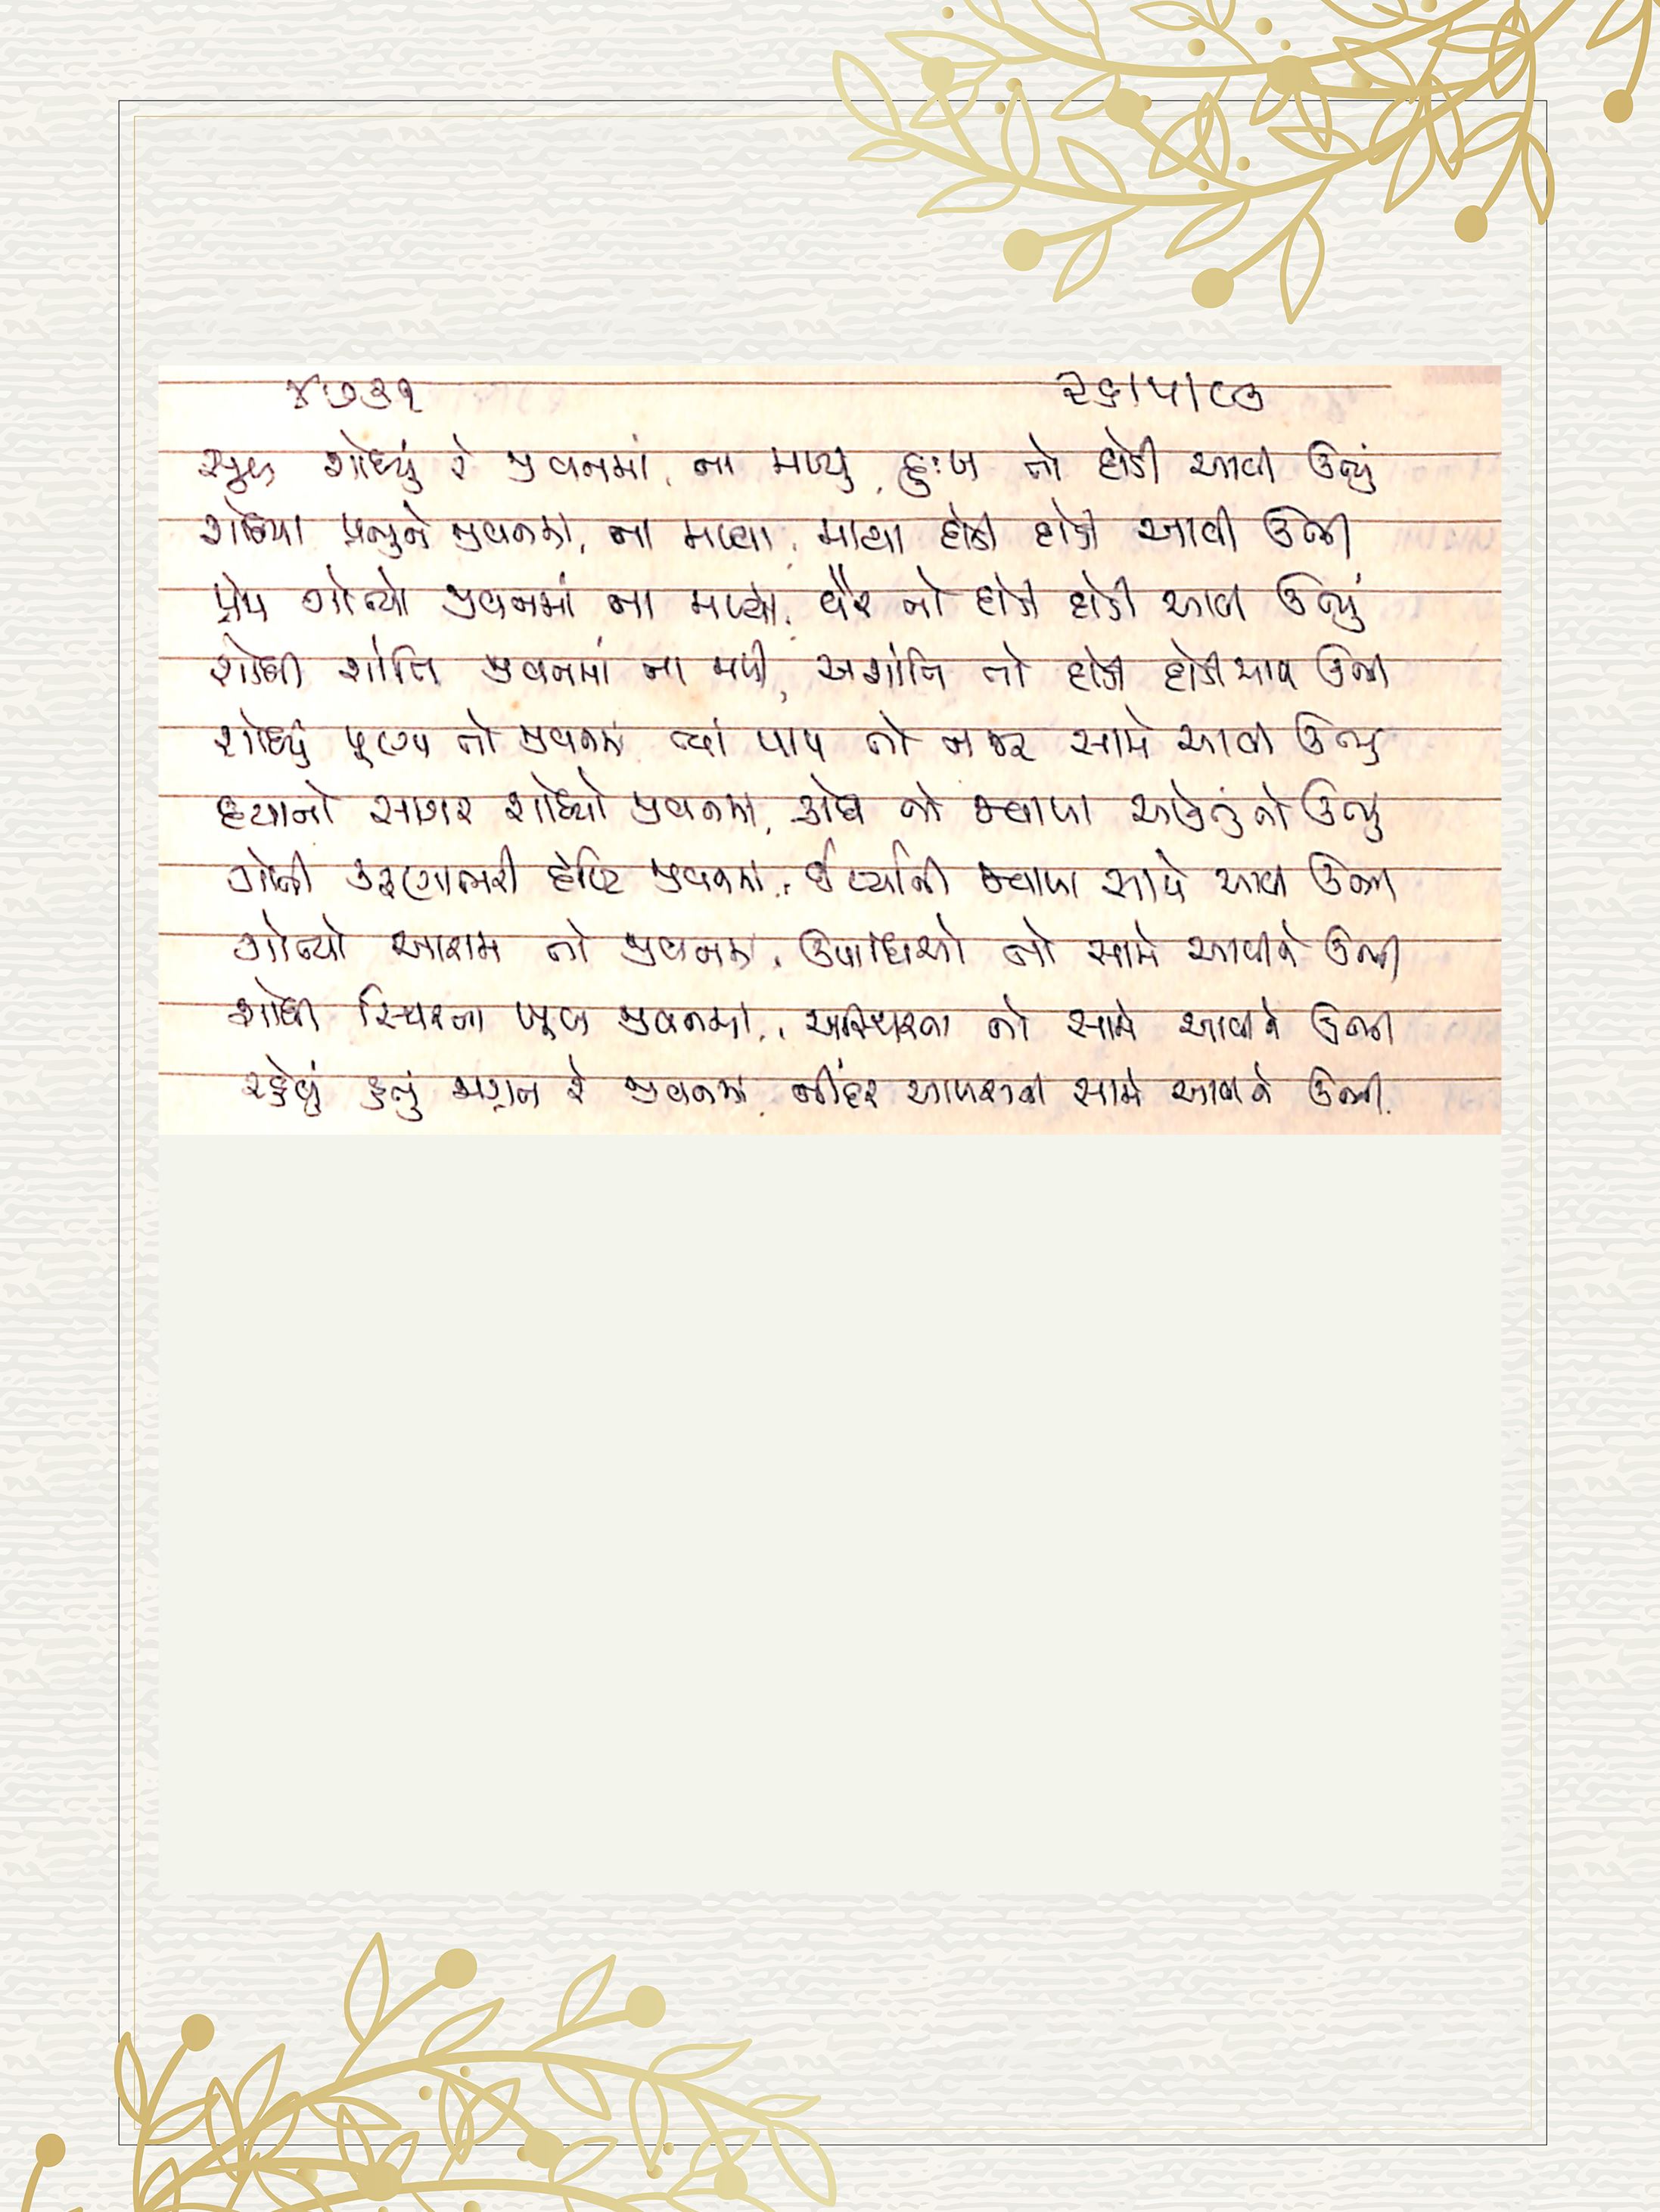 ૪૭૩૧ ૨૬/૫/૯૩
સુખ શોધ્યું રે જીવનમાં, ના મળ્યું, દુઃખ તો દોડી આવી ઊભું
શોધ્યા પ્રભુને જીવનમાં, ના મળ્યા, માયા દોડી દોડી આવી ઊભી
પ્રેમ ગોત્યો જીવનમાં ના મળ્યો, વૈર તો દોડી દોડી આવી ઊભું
શોધી શાંતિ જીવનમાં ના મળી, અશાંતિ તો દોડી દોડી આવી ઊભી
શોધ્યું પુણ્ય તો જીવનમાં ત્યાં પાપ તો નજર સામે આવી ઊભું
દયાનો સાગર શોધ્યો જીવનમાં, ક્રોધ તો જ્વાળા તો ઊભું
ગોતી કરુણાભરી દૃષ્ટિ જીવનમાં, ઈર્ષ્યાની જ્વાળા સામે આવી ઊભી
ગોત્યો આરામ તો જીવનમાં, ઉપાધિઓ તો સામે આવીને ઊભી
શોધી સ્થિરતા ખૂબ જીવનમાં, અસ્થિરતા તો સામે આવીને ઊભી
રહેવું હતું મગન રે જીવનમાં, નીંદર આળસની સામે આવીને ઊભી.